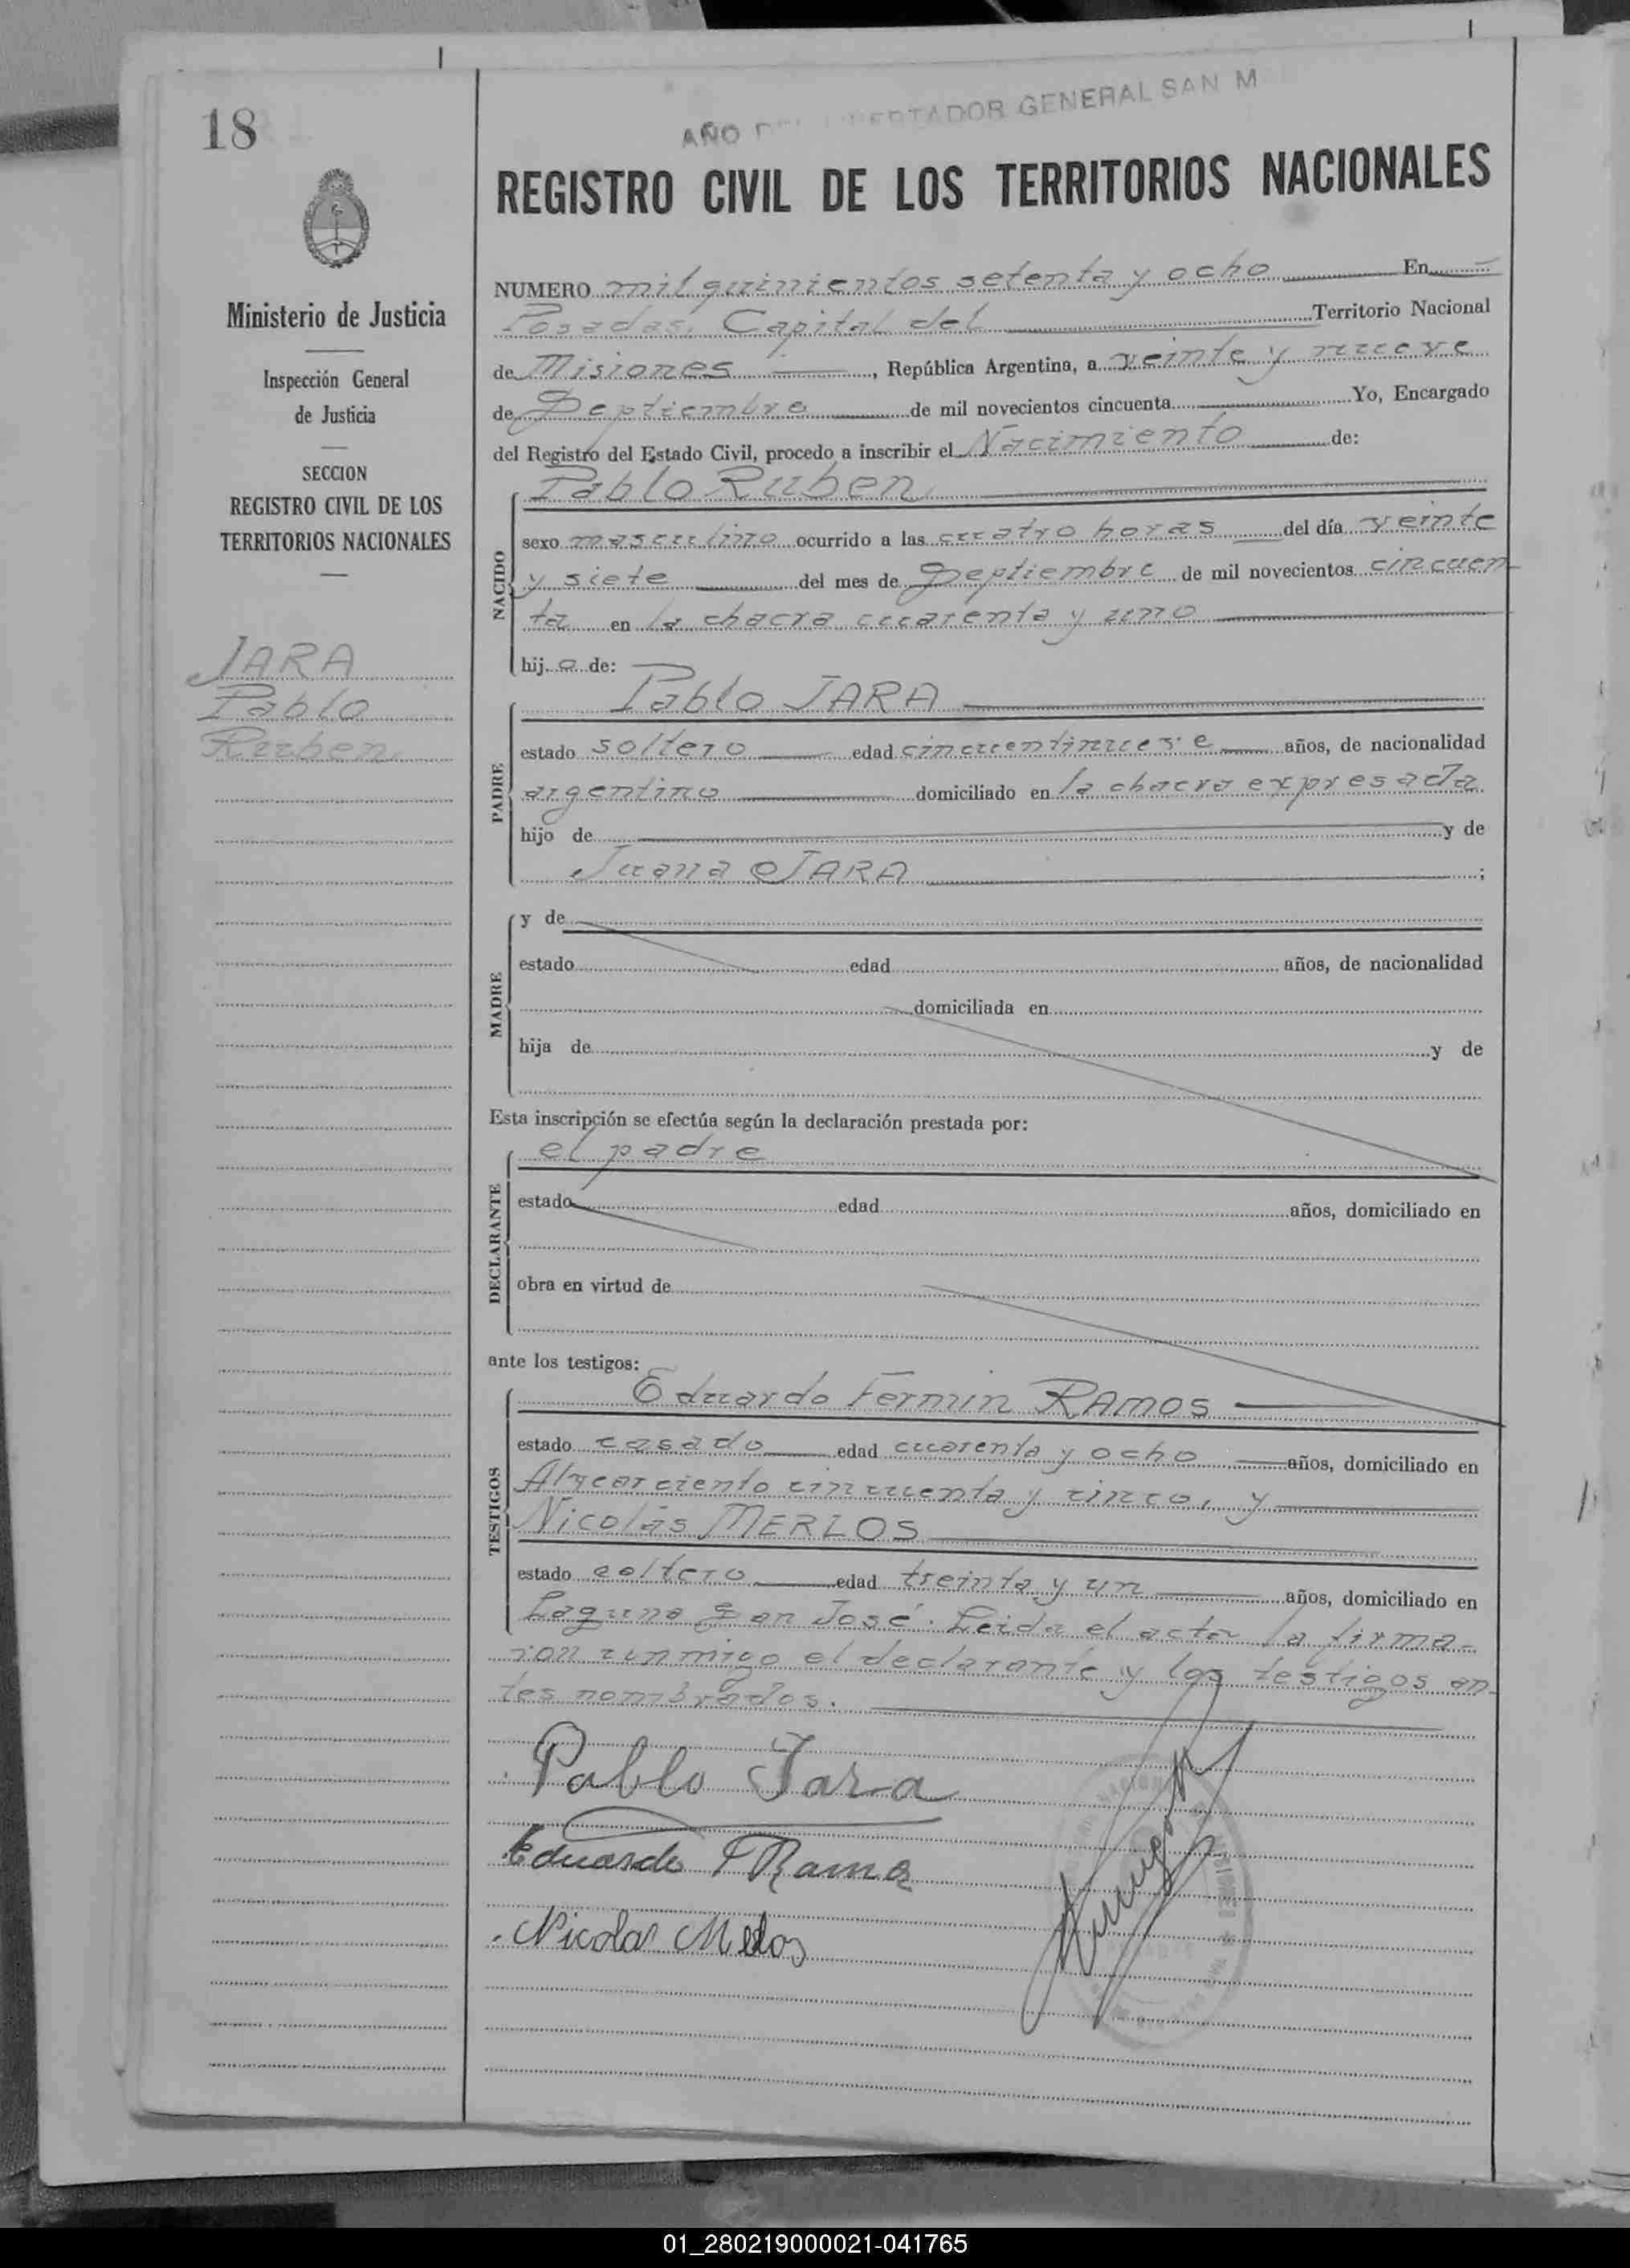 18
AÑO DEL LIBERTADOR GENERAL SAN M
REGISTRO CIVIL DE LOS TERRITORIOS NACIONALES
Ministerio de Justicia
Inspección General
de Justicia
SECCION
REGISTRO CIVIL DE LOS
TERRITORIOS NACIONALES
JARA
Pablo
Ruben
NUMERO mil quinientos setenta y ocho En
Posadas, Capital del Territorio Nacional
de Misiones, República Argentina, a veinte y nueve
de Septiembre de mil novecientos cincuenta Yo, Encargado
del Registro del Estado Civil, procedo a inscribir el Nacimiento de:
NACIDO
Pablo Ruben
sexo masculino ocurrido a las cuatro horas del día veinte
y siete del mes de Septiembre de mil novecientos cincuen
ta en la chacra cuarenta y uno
hij o de:
PADRE
Pablo JARA
estado soltero edad cincuentinueve años, de nacionalidad
argentino domiciliado en la chacra expresada
hijo de y de
Juana JARA ;
MADRE
y de
estado edad años, de nacionalidad
domiciliada en
hija de y de
Esta inscripción se efectúa según la declaración prestada por:
DECLARANTE
el padre
estado edad años, domiciliado en
obra en virtud de
ante los testigos:
TESTIGOS
Eduardo Fermin RAMOS
estado casado edad cuarenta y ocho años, domiciliado en
Alvear ciento cincuenta y cinco, y
Nicolás MERLOS
estado soltero edad treinta y un años, domiciliado en
Laguna San José. Leida el acta la firma-
ron conmigo el declarante y los testigos an-
tes nombrados.
Pablo Jara
Eduardo F Ramos
Nicolas Merlos
01_280219000021-041765